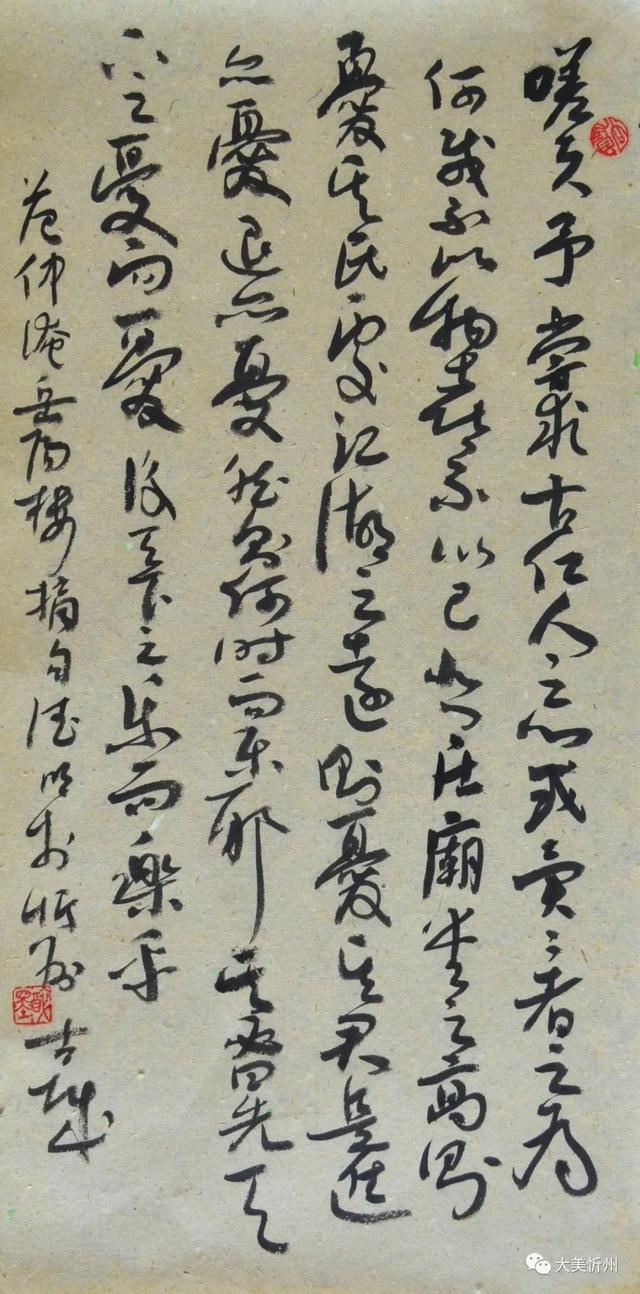 嗟夫予嘗求古仁人之心或異二者之為
何哉不以物喜不以己悲居廟堂之高則
憂其民處江湖之遠則憂其君是進
亦憂退亦憂然則何時而樂耶其必曰先天
下之憂而憂後天下之樂而樂乎
范仲淹岳陽樓摘句德明於忻州古城
大美忻州